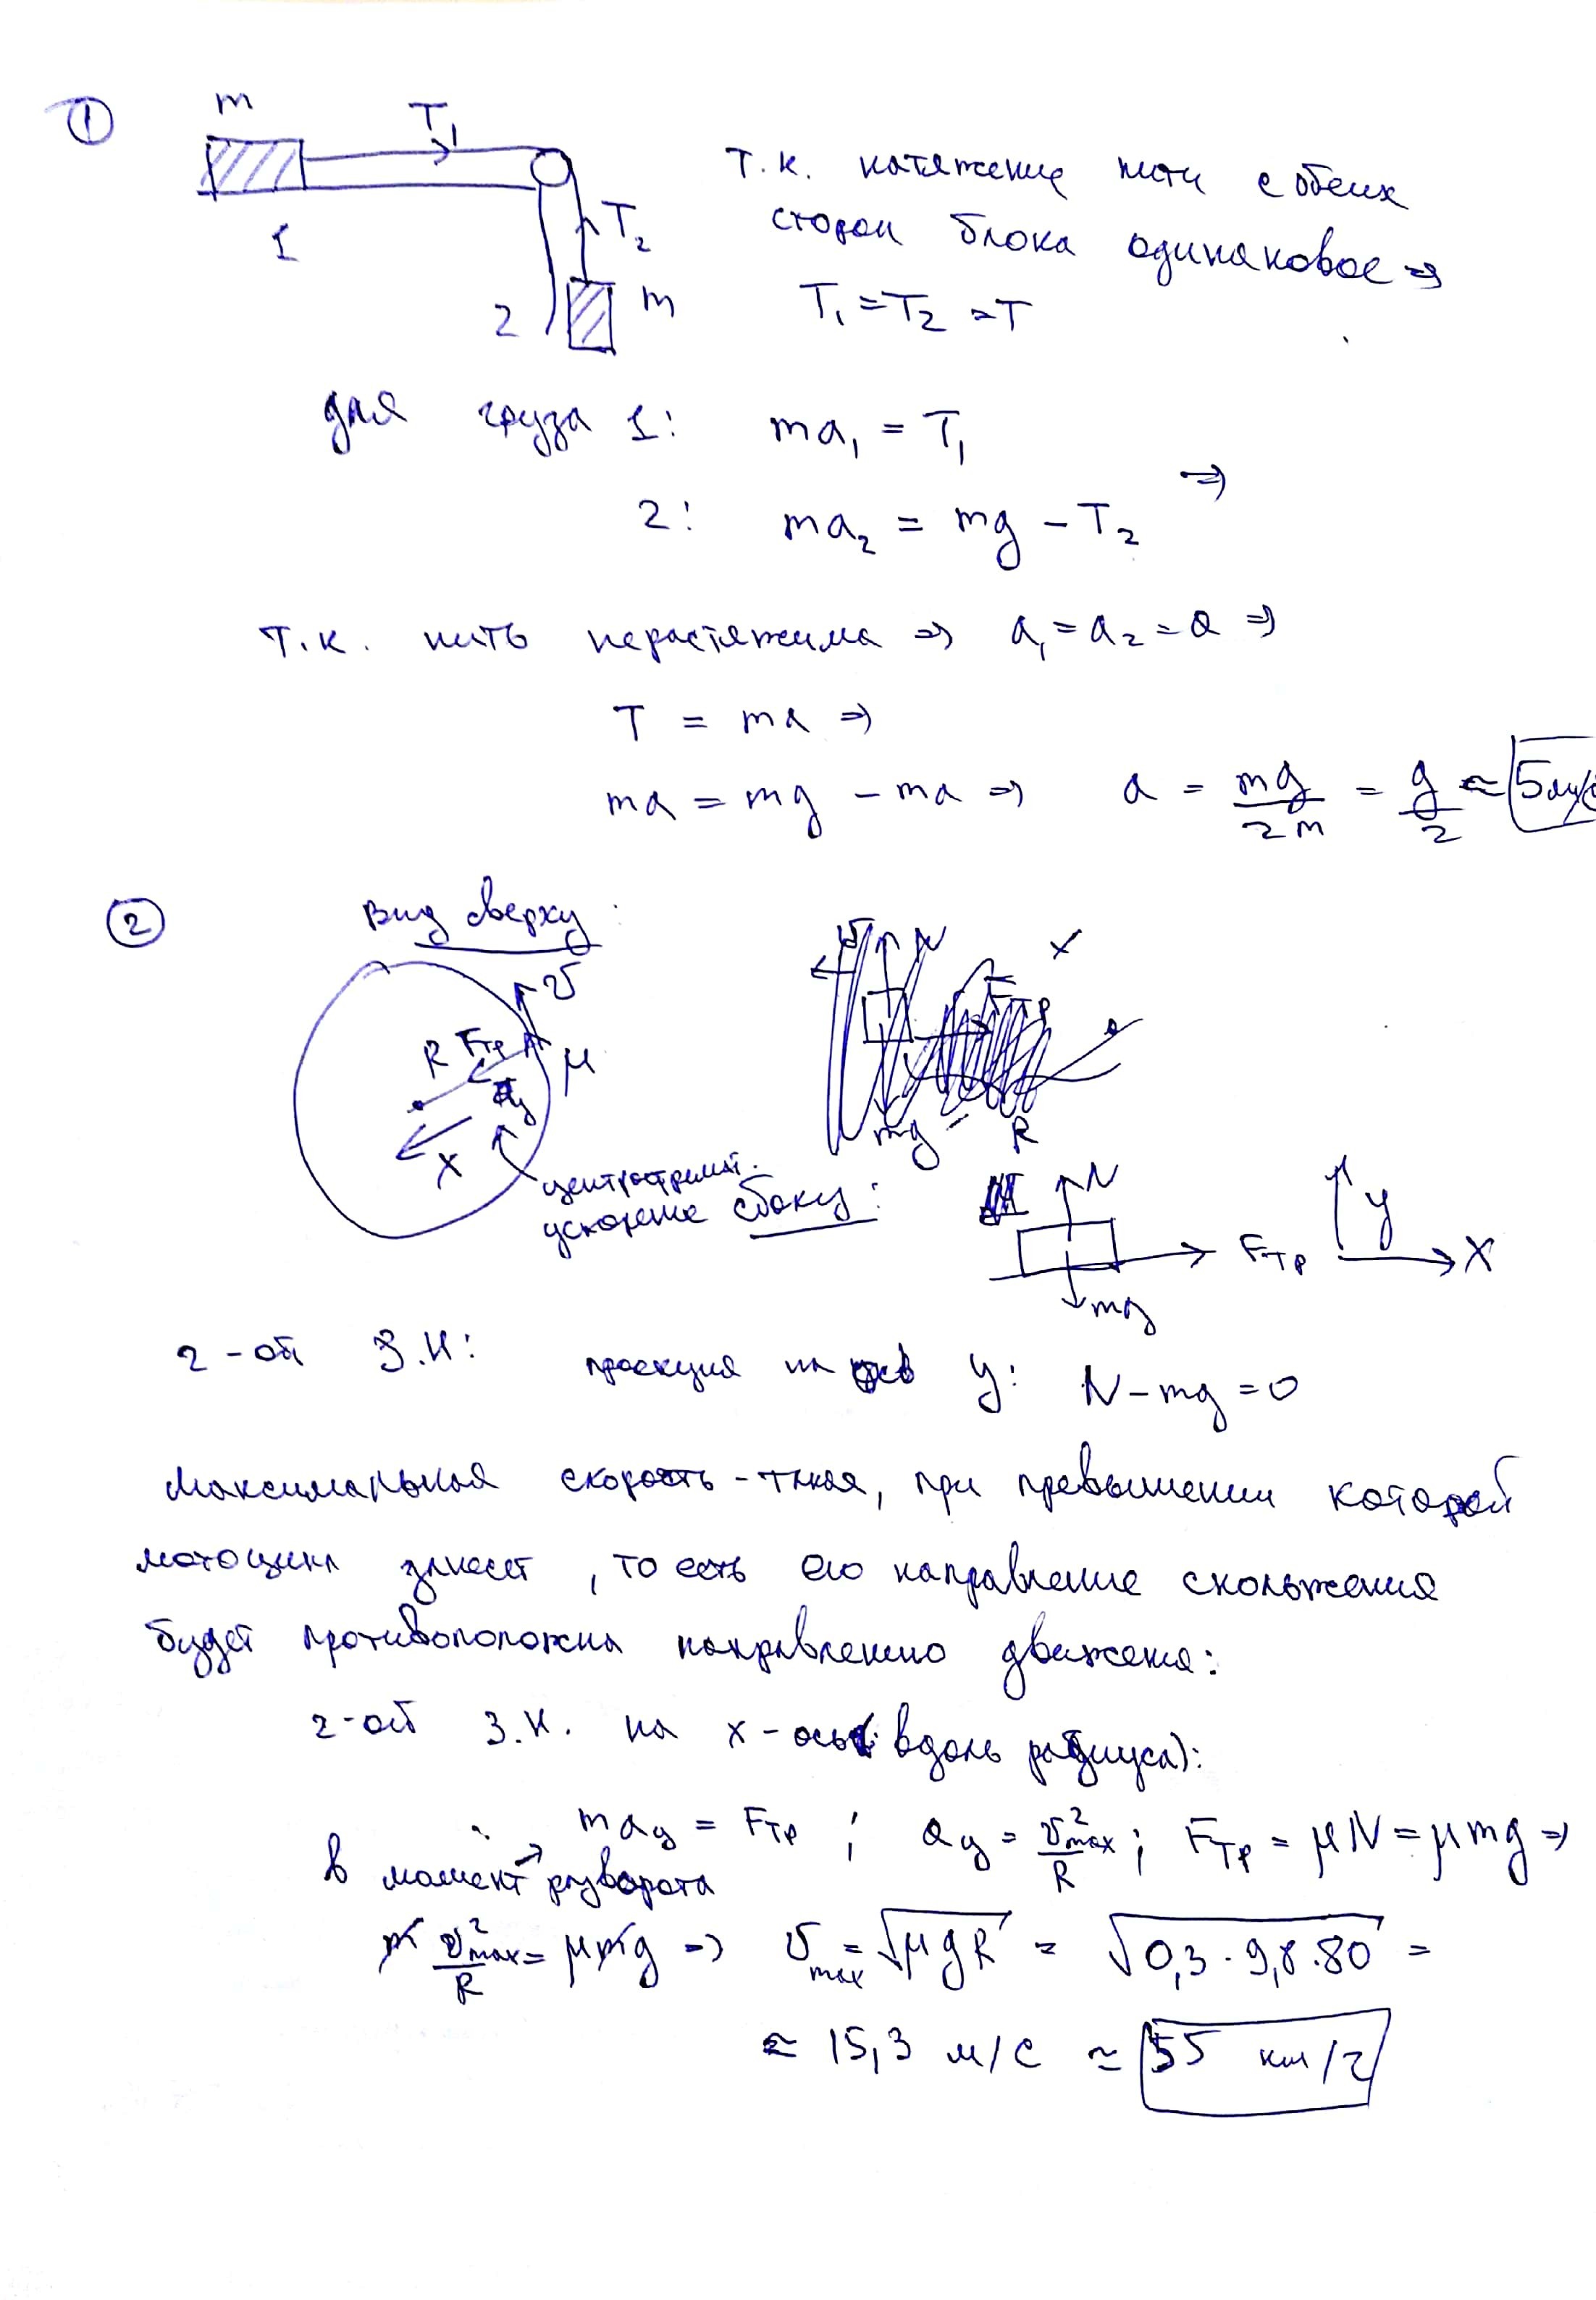 ①
m
T₁
1
T₂
2
m
т.к. натяжение нити с обеих
сторон блока одинаковое ⇒
T₁ = T₂ = T
для груза 1: ma₁ = T₁
⇒
2: ma₂ = mg - T₂
т.к. нить нерастяжима ⇒ a₁ = a₂ = a ⇒
T = ma ⇒
ma = mg - ma ⇒ a = mg/2m = g/2 ≈ 5 м/с
②
Вид сверху:
v
R
Fтр
μ
aу
X
центростремит.
ускорение
v
N
Fтр
X
mg
R
сбоку:
N
Fтр
mg
y
X
2-ой З.Н: проекция на ось y: N - mg = 0
Максимальная скорость - такая, при превышении которой
мотоцикл занесёт, то есть его направление скольжения
будет противоположна направлению движения:
2-ой З.Н. на x-ось (вдоль радиуса):
maу = Fтр ; aу = v²max/R ; Fтр = μN = μmg ⇒
в момент разворота
m v²max/R = μmg ⇒ vmax = √μgR = √0,3·9,8·80 =
≈ 15,3 м/с ≈ 55 км/ч